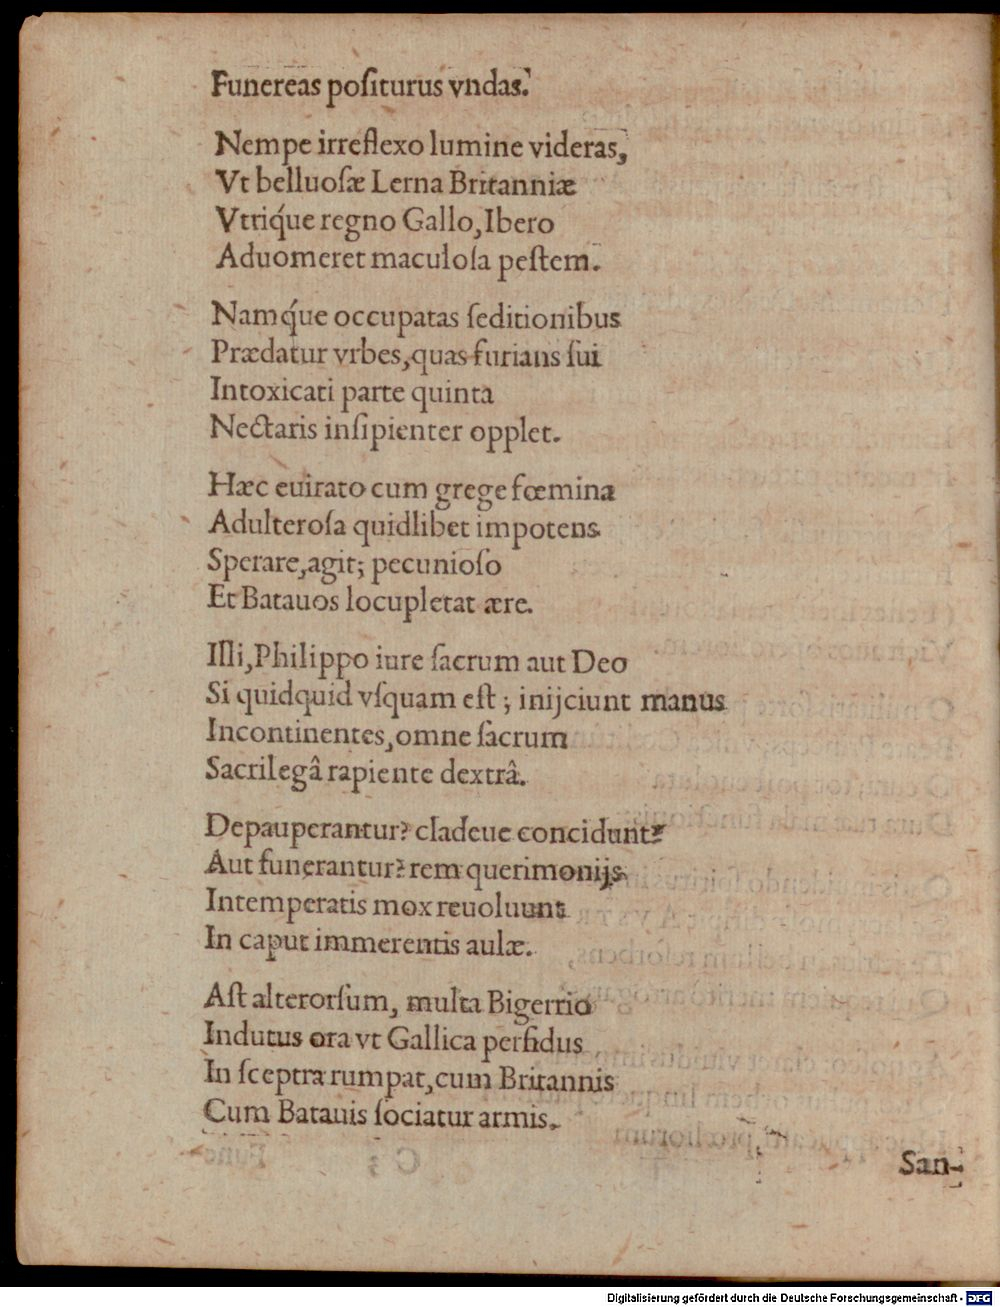 Funereas poſiturus vndas?
Nempe irreflexo lumine videras,
Vt belluoſæ Lerna Britanniæ
Vtriq́ue regno Gallo, Ibero
Aduomeret maculoſa peſtem.
Namq́ue occupatas ſeditionibus
Prædatur vrbes, quas furians ſui
Intoxicati parte quinta
Nectaris inſipienter opplet.
Hæc euirato cum grege fœmina
Adulteroſa quidlibet impotens
Sperare, agit; pecunioſo
Et Batauos locupletat ære.
Illi, Philippo iure ſacrum aut Deo
Si quidquid vſquam eſt; inijciunt manus
Incontinentes, omne ſacrum
Sacrilegâ rapiente dextrâ.
Depauperantur? cladeue concidunt?
Aut funerantur? rem querimonijs
Intemperatis mox reuoluunt
In caput immerentis aulæ.
Aſt alterorſum, multa Bigerrio
Indutus ora vt Gallica perfidus
In ſceptra rumpat, cum Britannis
Cum Batauis ſociatur armis.
San-
Digitalisierung gefördert durch die Deutsche Forschungsgemeinschaft - DFG